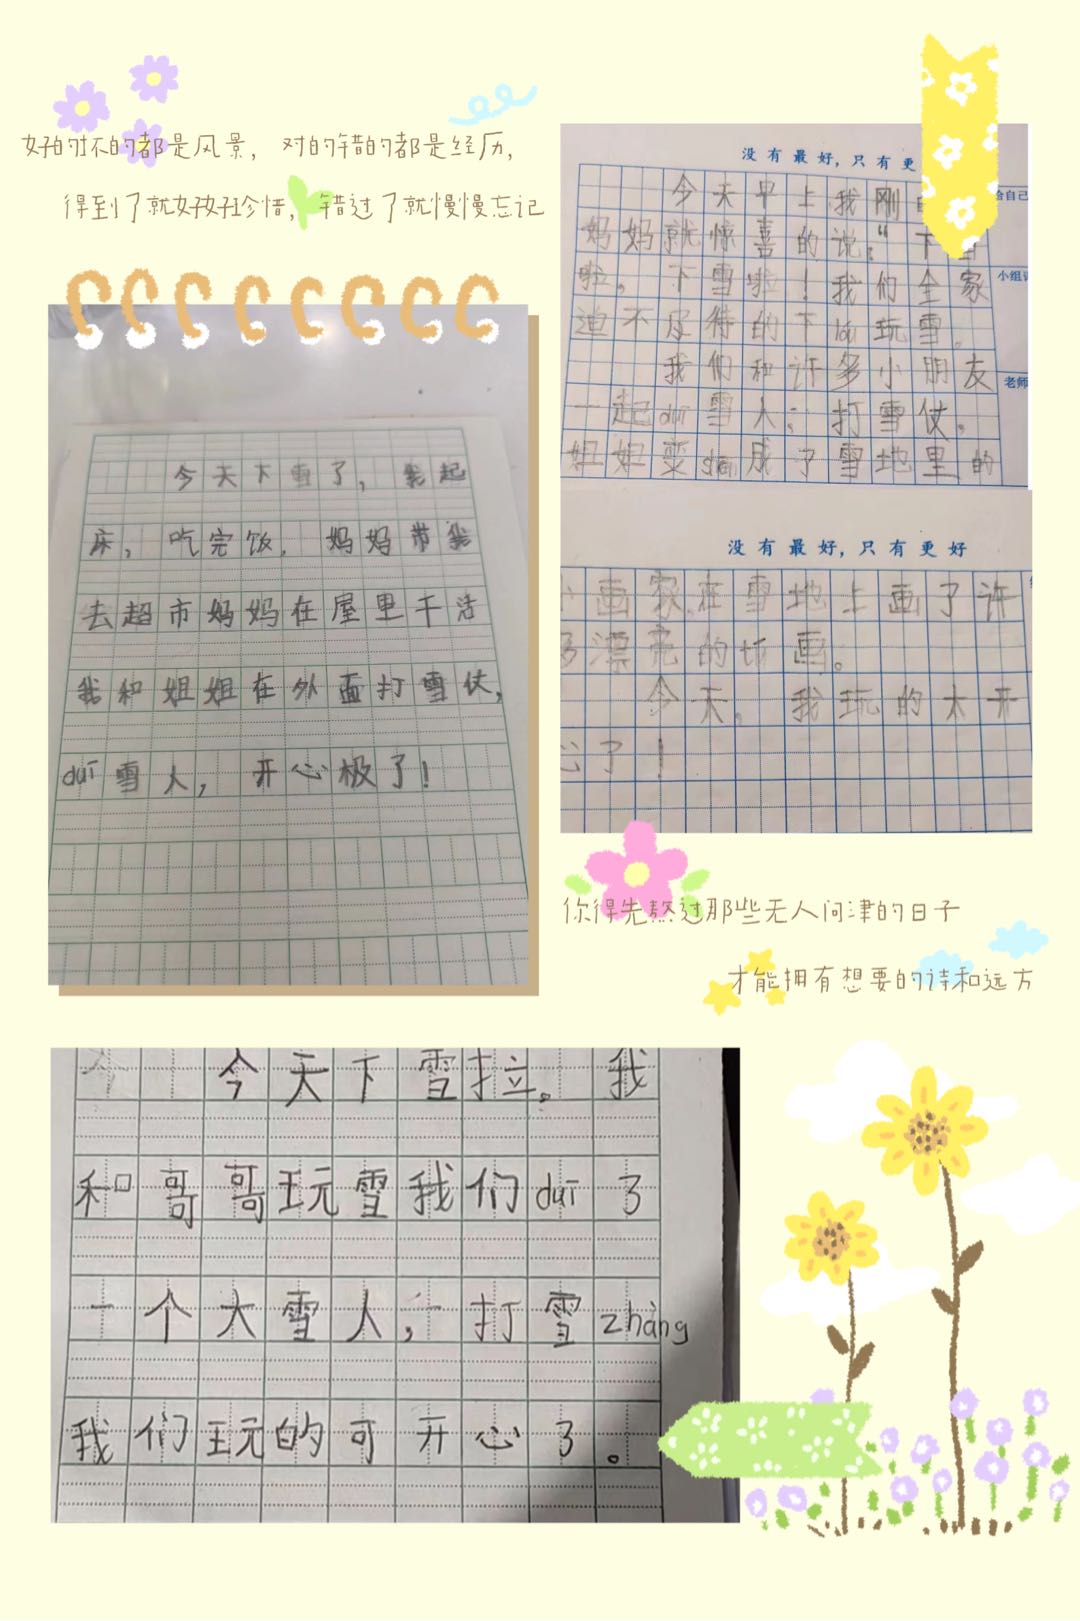 好的坏的都是风景， 对的错的都是经历，
得到了就好好珍惜， 错过了就慢慢忘记
今天下雪了， 我起
床， 吃完饭， 妈妈带我
去超市妈妈在屋里干活
我和姐姐在外面打雪仗，
duī雪人， 开心极了！
没有最好，只有更
今天早上我刚
给自己
妈妈就惊喜的说：“下雪
啦， 下雪啦！我们全家
小组
迫不及待的下lóu玩雪。
我们和许多小朋友
老师
一起duī雪人， 打雪仗，
姐姐变成了雪地里的
没有最好，只有更好
小画家，在雪地上画了许
多漂亮的画。
今天， 我玩的太开
心了！
你得先熬过那些无人问津的日子
才能拥有想要的诗和远方
今天下雪拉。 我
和哥哥玩雪我们duī了
一个大雪人， 打雪zhàng
我们玩的可开心了。